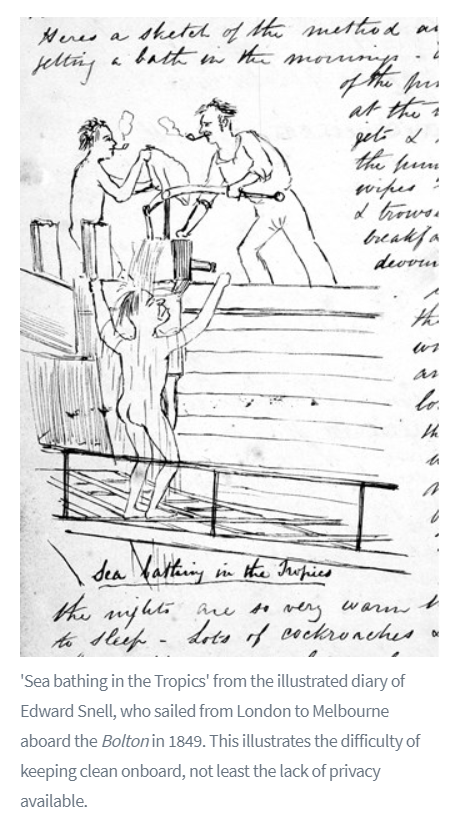 Heres a sketch of the method
getting a bath in the mornings -
of the
at the
gets &
the pum
wipes
& trows
breakfa
devour
the
an
lo
th
Sea bathing in the Tropics
the nights are so very warm
to sleep - Lots of cockroaches &
'Sea bathing in the Tropics' from the illustrated diary of
Edward Snell, who sailed from London to Melbourne
aboard the Bolton in 1849. This illustrates the difficulty of
keeping clean onboard, not least the lack of privacy
available.